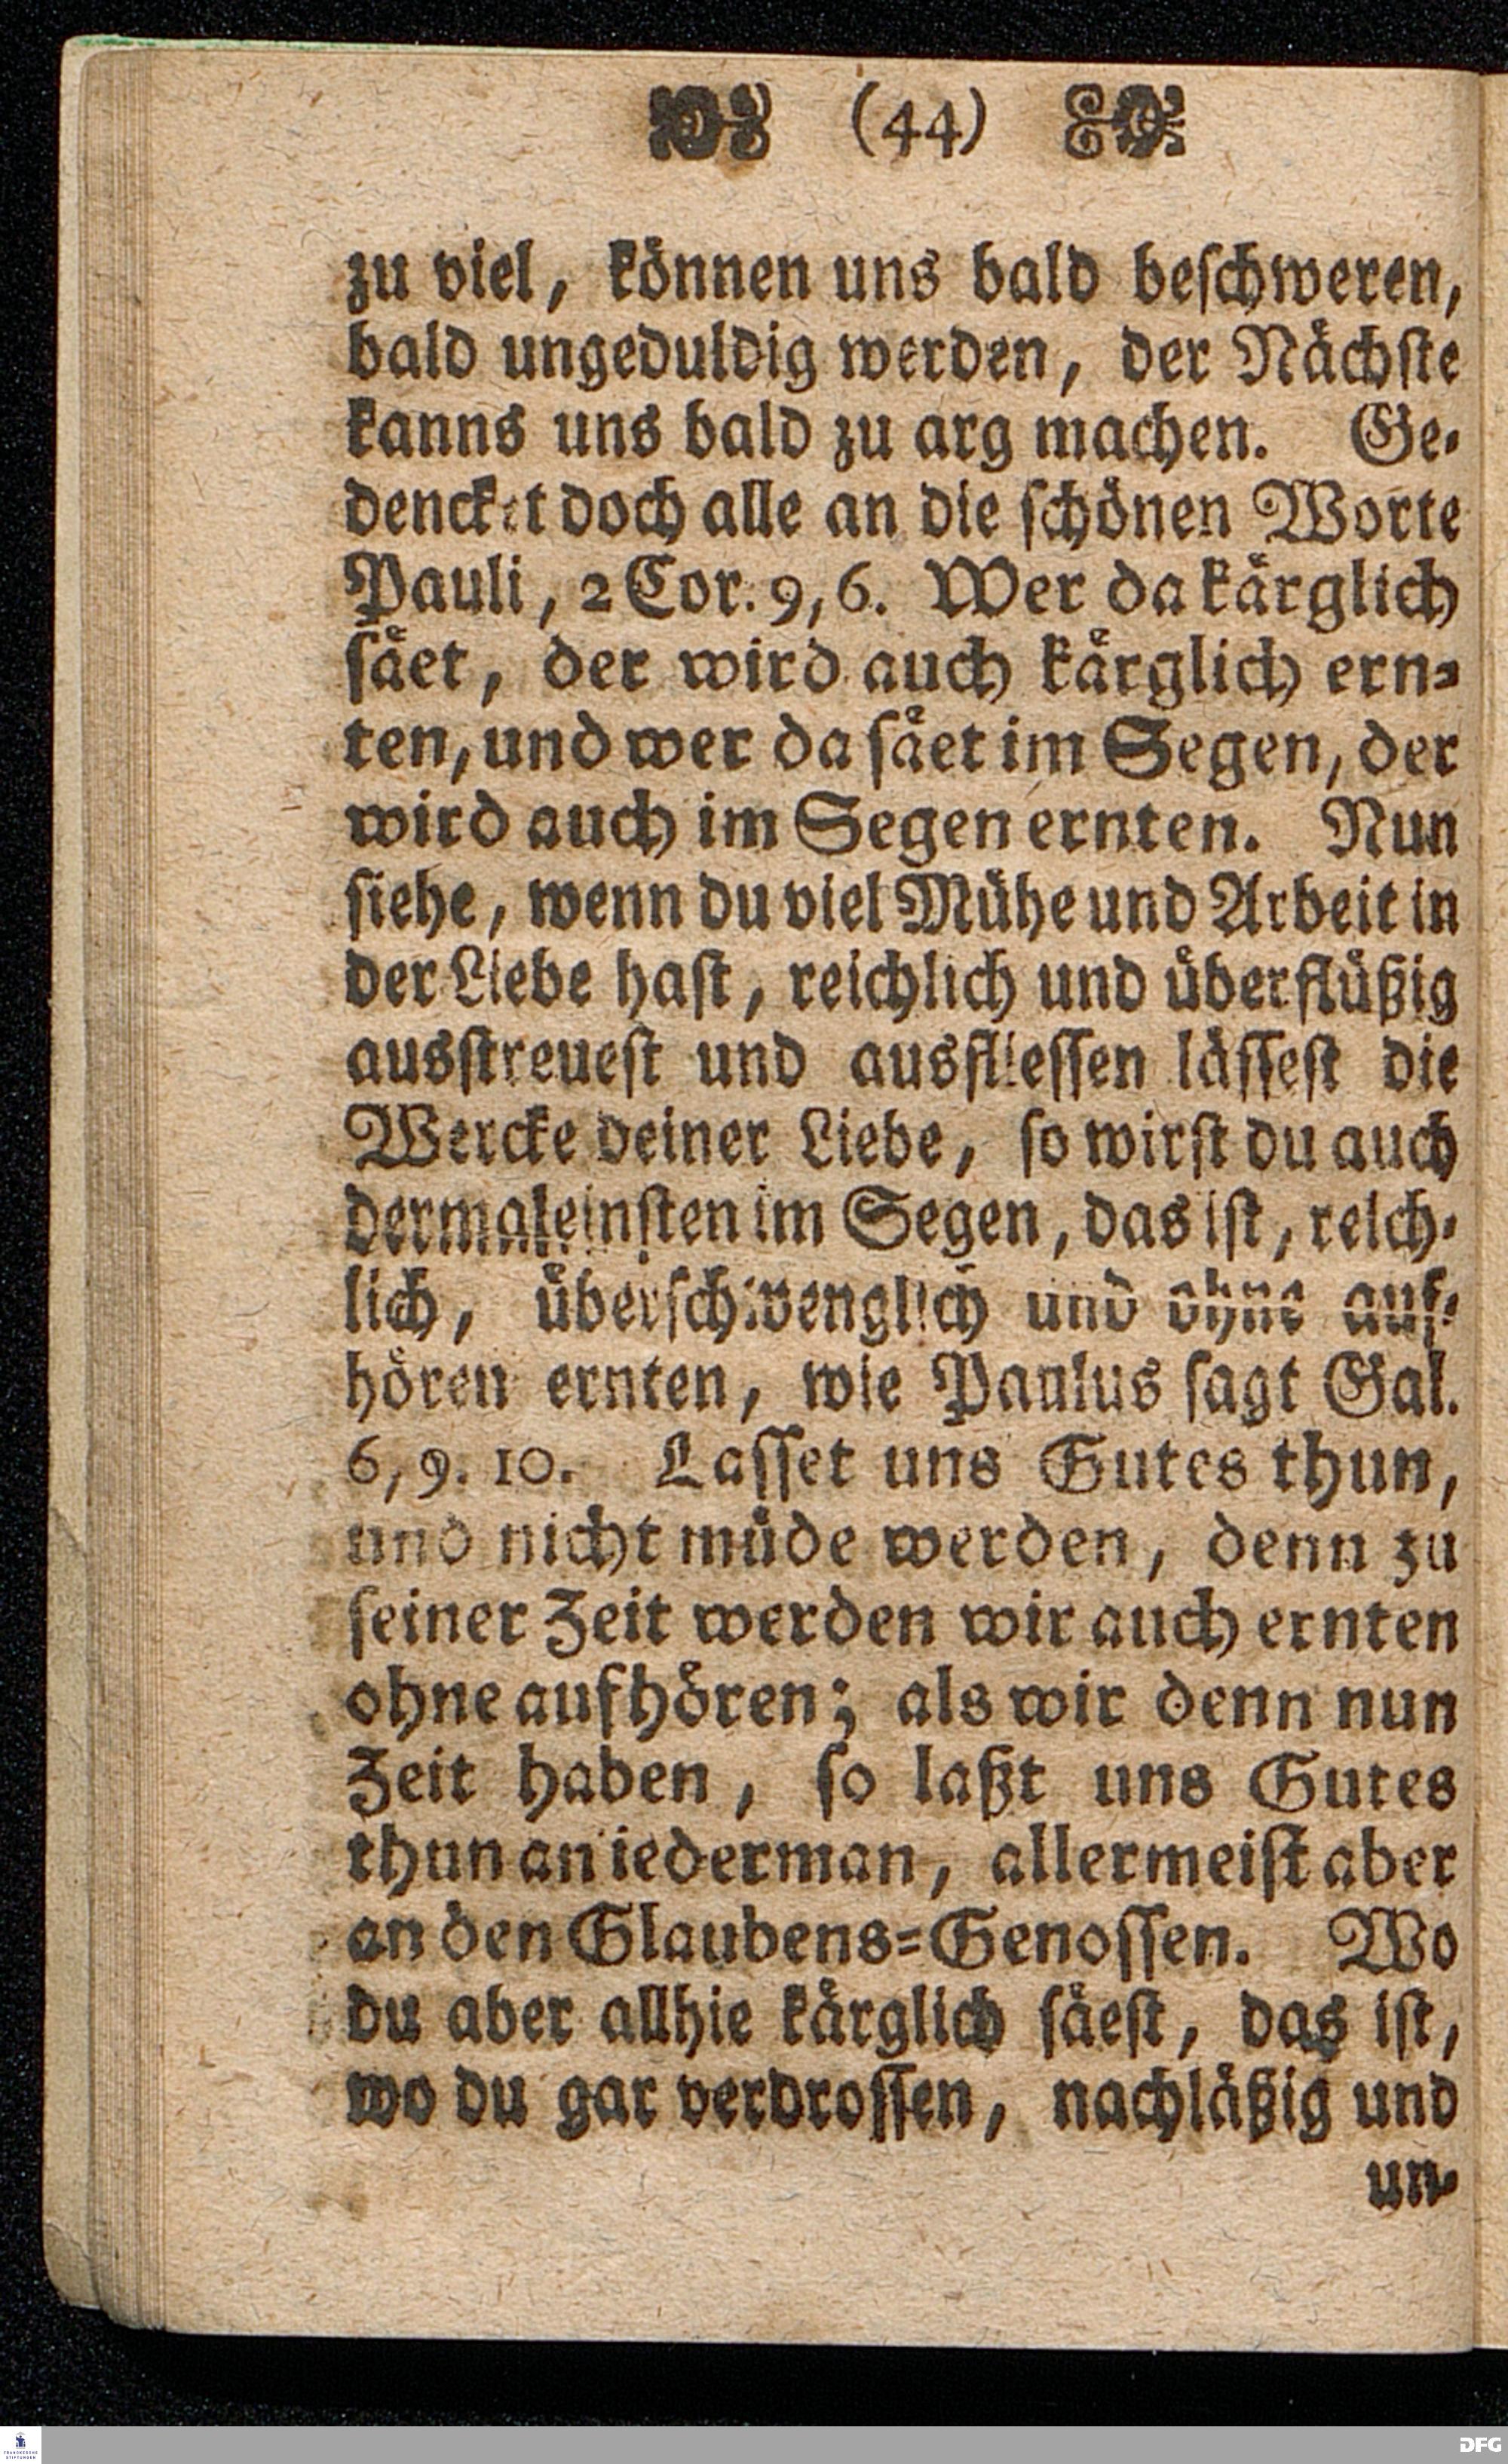 (44)
zu viel, können uns bald beſchweren,
bald ungeduldig werden, der Nächſte
kanns uns bald zu arg machen. Ge-
dencket doch alle an die ſchönen Worte
Pauli, 2 Cor. 9, 6. Wer da kärglich
ſäet, der wird auch kärglich ern-
ten, und wer da ſäet im Segen, der
wird auch im Segen ernten. Nun
ſiehe, wenn du viel Mühe und Arbeit in
der Liebe haſt, reichlich und überflüßig
ausſtreueſt und ausflieſſen läſſeſt die
Wercke deiner Liebe, ſo wirſt du auch
dermaleinſten im Segen, das iſt, reich-
lich, überſchwenglich und ohne auf-
hören ernten, wie Paulus ſagt Gal.
6, 9. 10. Laſſet uns Gutes thun,
und nicht müde werden, denn zu
ſeiner Zeit werden wir auch ernten
ohne aufhören; als wir denn nun
Zeit haben, ſo laßt uns Gutes
thun an iederman, allermeiſt aber
an den Glaubens-Genoſſen. Wo
du aber allhie kärglich ſäeſt, das iſt,
wo du gar verdroſſen, nachläßig und
un-
FRANCKESCHE
STIFTUNGEN
DFG